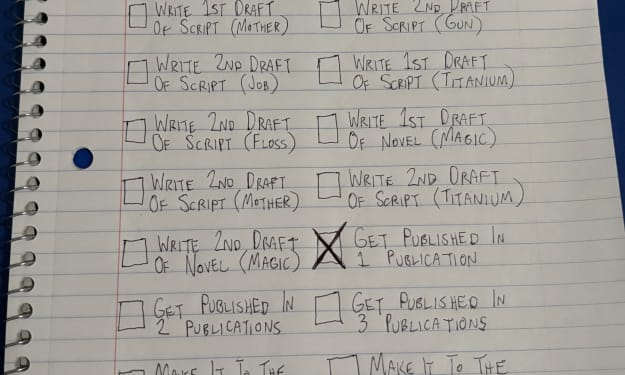 WRITE 1ST DRAFT
OF SCRIPT (MOTHER)
WRITE 2ND DRAFT
OF SCRIPT (GUN)
WRITE 2ND DRAFT
OF SCRIPT (JOB)
WRITE 1ST DRAFT
OF SCRIPT (TITANIUM)
WRITE 2ND DRAFT
OF SCRIPT (FLOSS)
WRITE 1ST DRAFT
OF NOVEL (MAGIC)
WRITE 2ND DRAFT
OF SCRIPT (MOTHER)
WRITE 2ND DRAFT
OF SCRIPT (TITANIUM)
WRITE 2ND DRAFT
OF NOVEL (MAGIC)
GET PUBLISHED IN
1 PUBLICATION
GET PUBLISHED IN
2 PUBLICATIONS
GET PUBLISHED IN
3 PUBLICATIONS
MAKE IT TO THE
MAKE IT TO THE